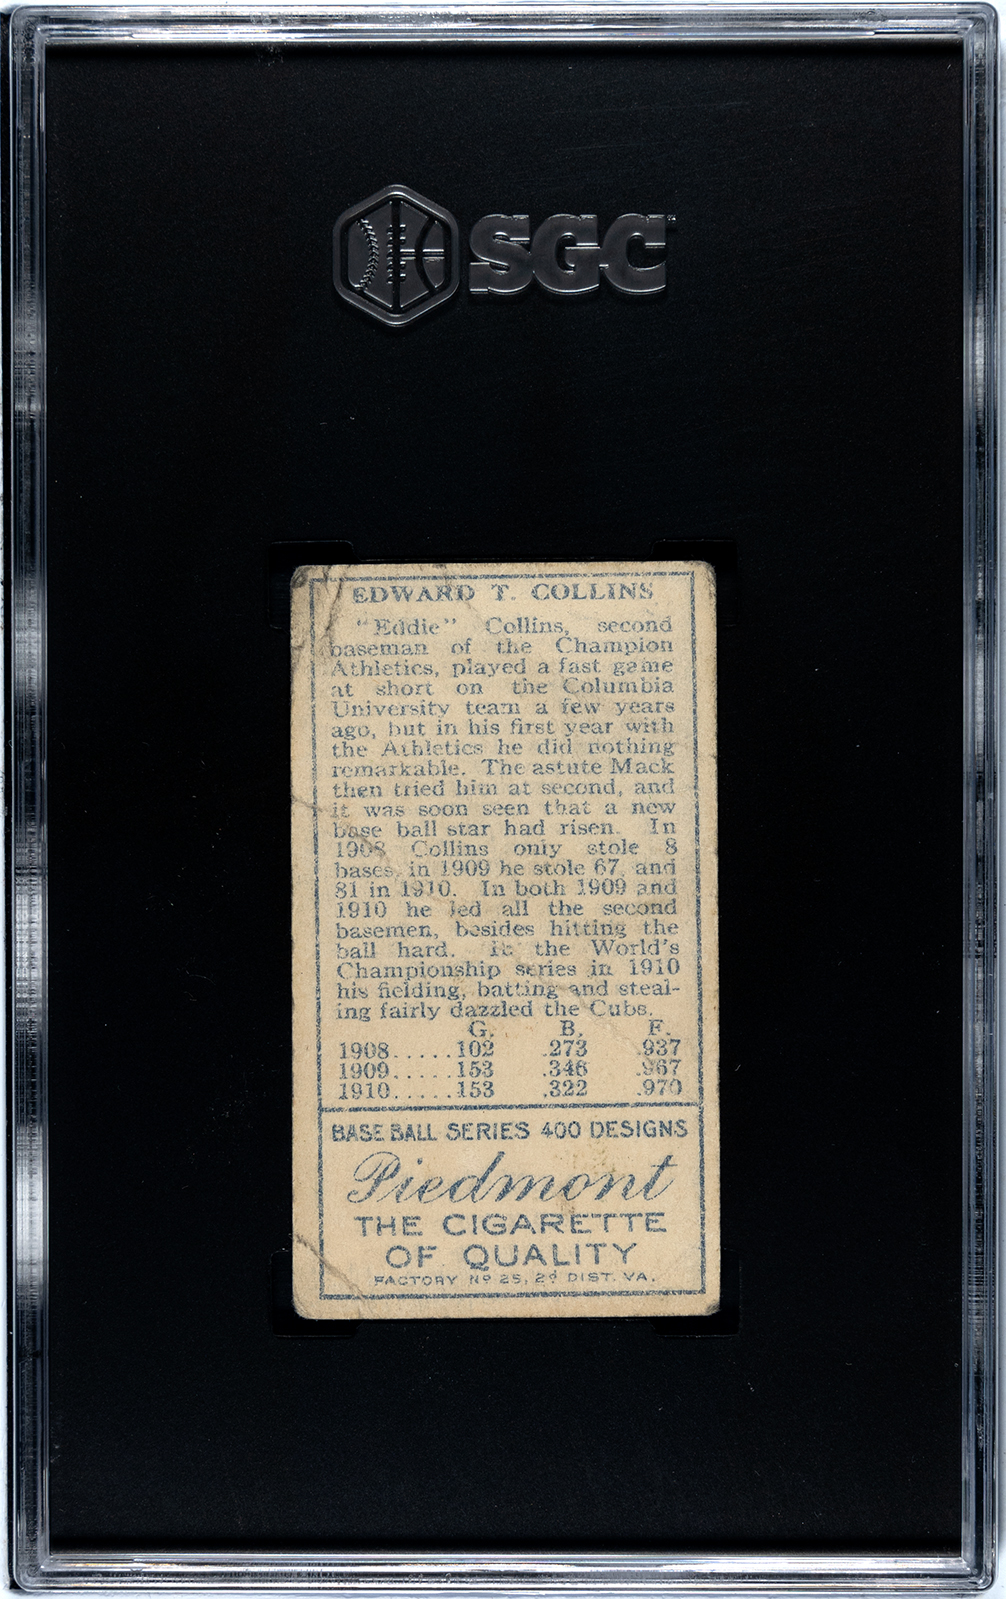 SGC
EDWARD T. COLLINS
"Eddie" Collins, second
baseman of the Champion
Athletics, played a fast game
at short on the Columbia
University team a few years
ago, but in his first year with
the Athletics he did nothing
remarkable. The astute Mack
then tried him at second, and
it was soon seen that a new
base ball star had risen. In
1908 Collins only stole 8
bases, in 1909 he stole 67, and
81 in 1910. In both 1909 and
1910 he led all the second
basemen, besides hitting the
ball hard. In the World's
Championship series in 1910
his fielding, batting and steal-
ing fairly dazzled the Cubs.
G. B. F.
1908.....102 .273 .937
1909.....153 .346 .967
1910.....153 .322 .970
BASE BALL SERIES 400 DESIGNS
Piedmont
THE CIGARETTE
OF QUALITY
FACTORY Nº 25, 2d DIST. VA.